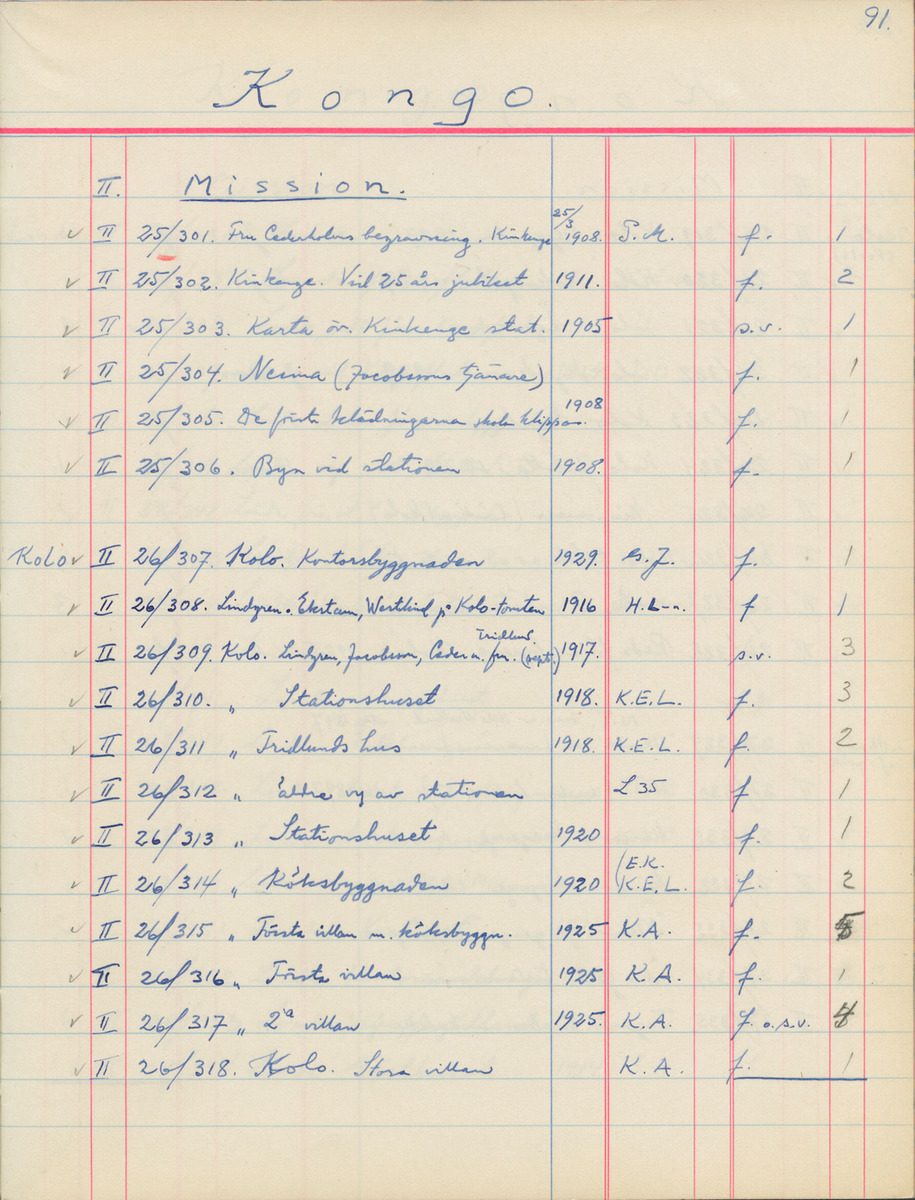 91.
Kongo.
II. Mission.
✓ II 25/301. Fru Cederholms begravning. Kinkenge 25/3 1908. P.M. f. 1
✓ II 25/302. Kinkenge. Vid 25 års jubileet 1911. f. 2
✓ II 25/303. Karta öv. Kinkenge stat. 1905 s.v. 1
✓ II 25/304. Nesima (Jacobssons tjänare) f. 1
✓ II 25/305. De första klädningarna skola klippas. 1908 f. 1
✓ II 25/306. Byn vid stationen 1908. f. 1
Kolo ✓ II 26/307. Kolo. Kontorsbyggnaden 1929. G.J. f. 1
✓ II 26/308. Lindgren o. Ekstam, Westlind på Kolo-tomten 1916 H.L-n. f 1
✓ II 26/309. Kolo. Lindgren, Jacobsson, Ceder m. fru. Fridlund. (sept.) 1917. s.v. 3
✓ II 26/310. " Stationshuset 1918. K.E.L. f. 3
✓ II 26/311 " Fridlunds hus 1918. K.E.L. f. 2
✓ II 26/312 " äldre vy av stationen L 35 f. 1
✓ II 26/313 " Stationshuset 1920 f. 1
✓ II 26/314 " Köksbyggnaden 1920 (E.K. K.E.L. f. 2
✓ II 26/315 " Första villan m. köksbyggn. 1925 K.A. f. 5
✓ II 26/316 " Första villan 1925 K.A. f. 1
✓ II 26/317 " 2a villan 1925. K.A. f. o. s.v. 4
✓ II 26/318. Kolo. Stora villan K.A. f. 1